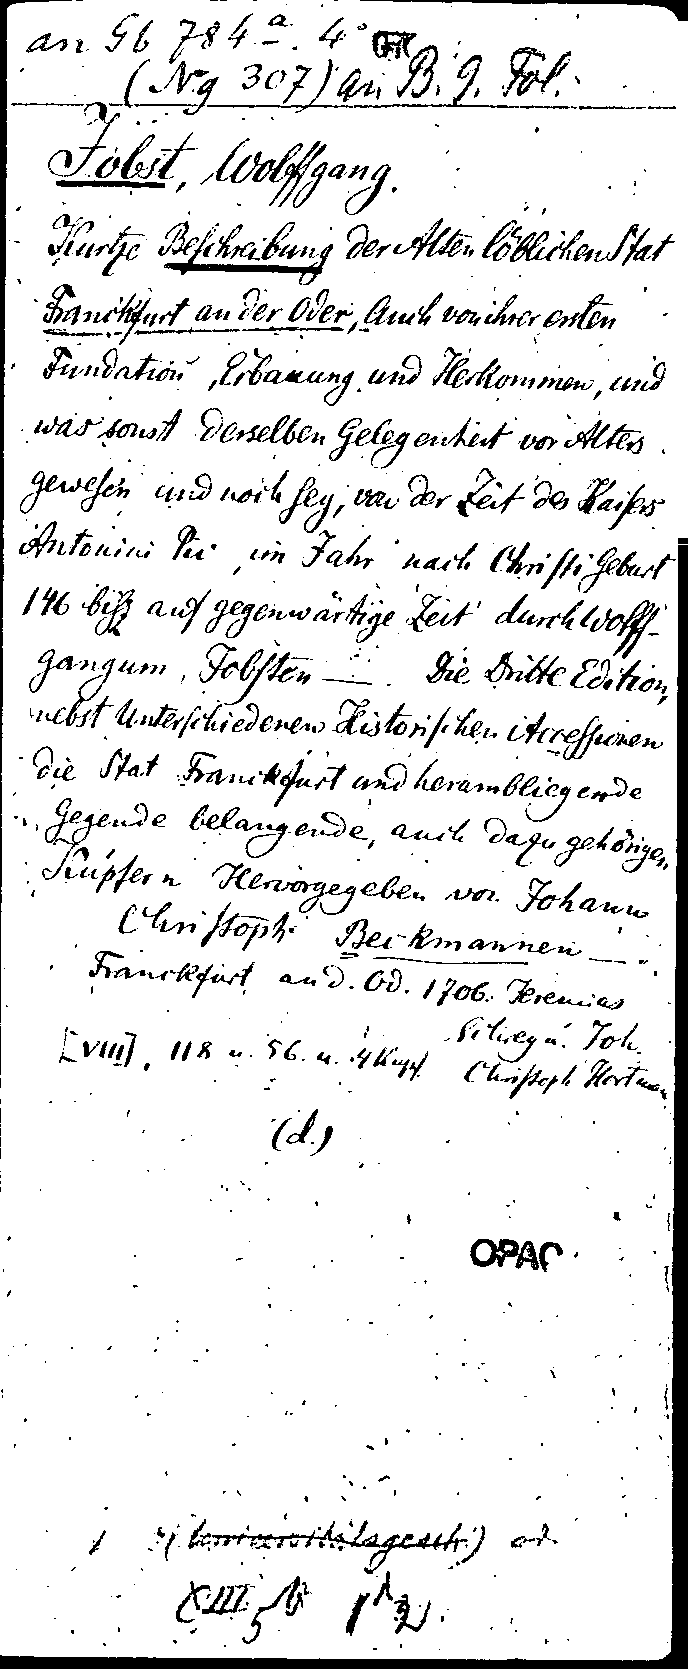 an Gb 784a. 4°
(Ng 307) an B. 9. Fol.
Jobst, Wolffgang.
Kurtze Beschreibung der Alten löblichen Stat
Franckfurt an der Oder, Auch von ihrer ersten
Fundation, Erbauung und Herkommen, und
was sonst derselben Gelegenheit vor Alters
gewesen und noch sey, von der Zeit des Kaisers
Antonini Pii, im Jahr nach Christi Geburt
146 biß auf gegenwärtige Zeit durch Wolff-
gangum, Jobsten —. Die Dritte Edition,
nebst Unterschiedenen Historischen Accessionen
die Stat Franckfurt und herumbliegende
Gegende belangende, auch dazu gehörigen
Kupfern Hervorgegeben von Johann
Christoph Beckmannen —.
Franckfurt an d. Od. 1706. Jeremias
Schrey u. Joh.
Christoph Hartmann
[VIII], 118 u. 56. u. 4 Kupf.
(d.)
OPAC
(Universitätsgesch.) od.
XIII 5